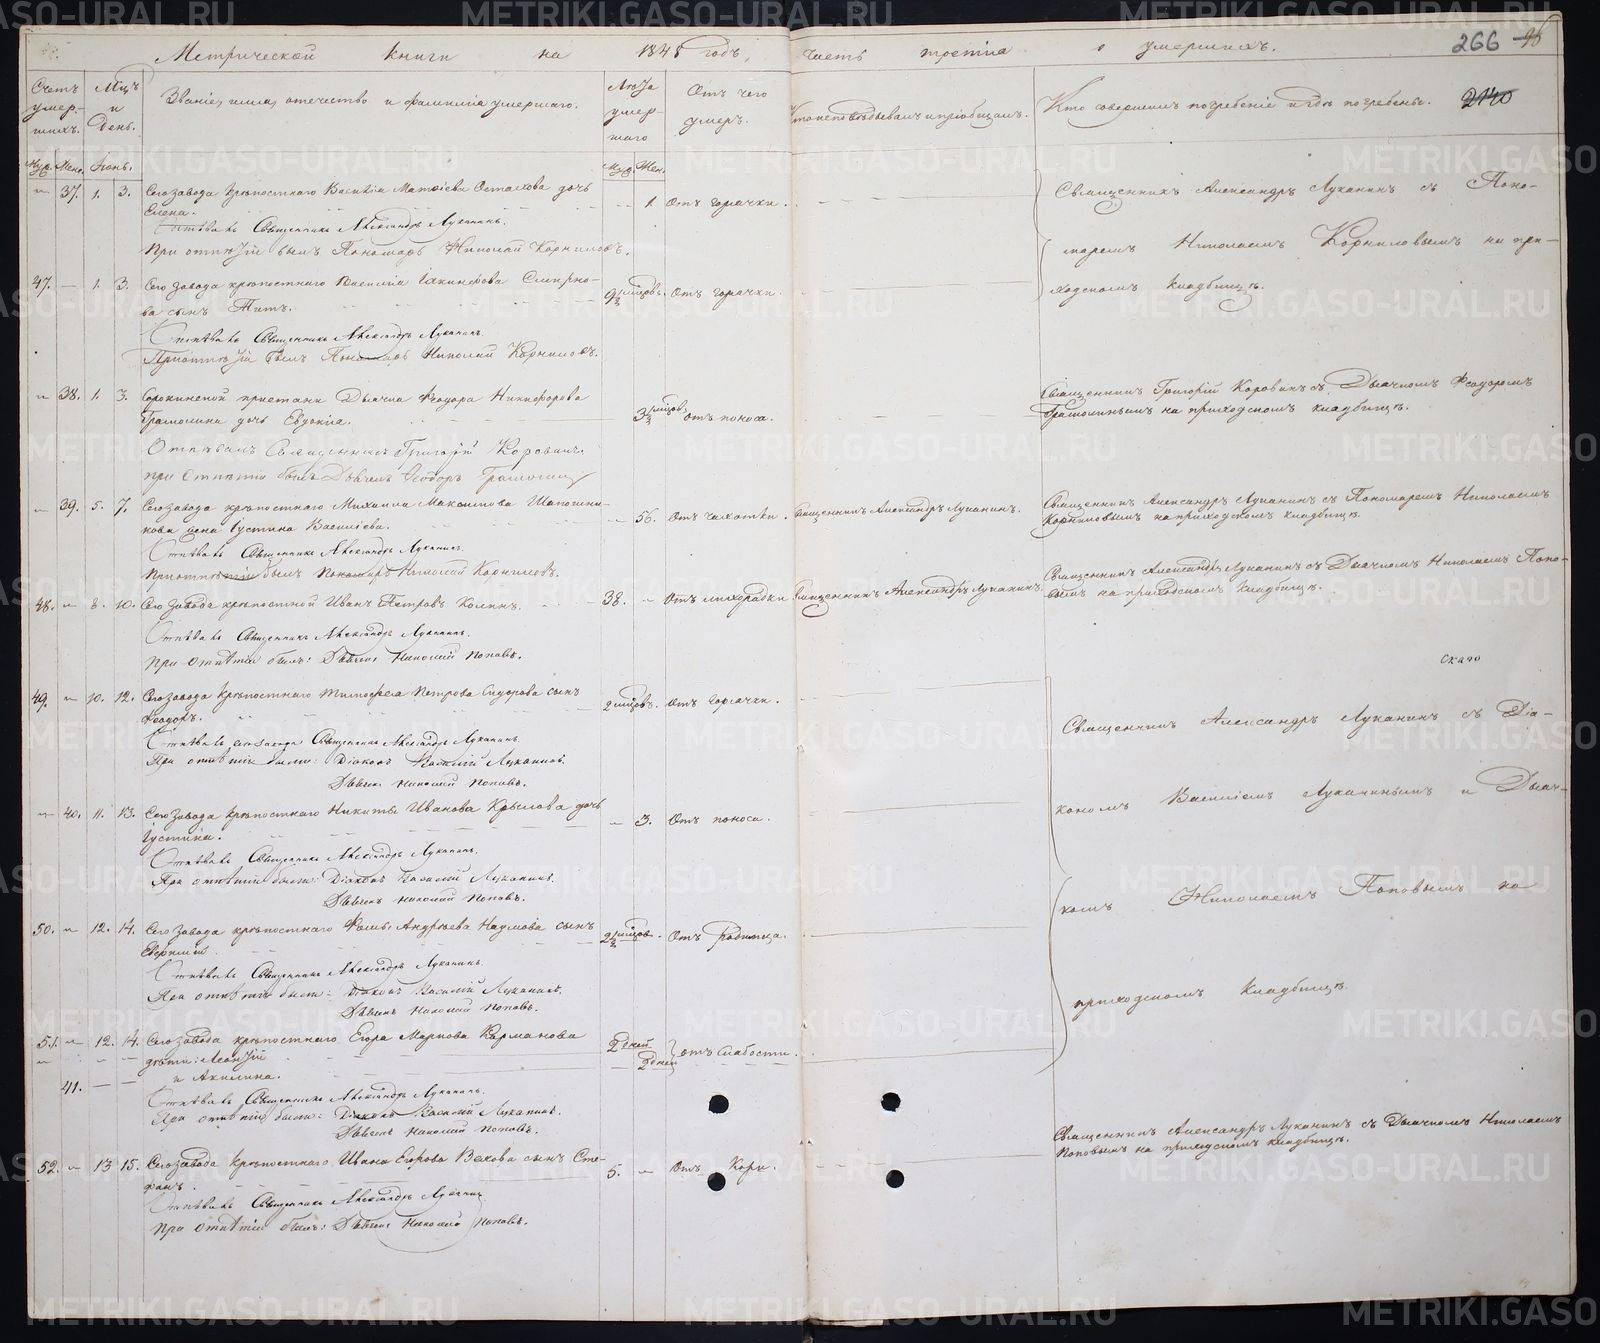 Метрической книги на 1848 годъ, часть третія о умершихъ. 266
Счетъ умер-шихъ. Мцъ и день. Званіе, имя, отечество и фамилія умершаго. Лѣта умер-шаго Отъ чего умеръ. Кто исповѣдывалъ и пріобщалъ. Кто совершилъ погребеніе и гдѣ погребены. 2140
Муж. Жен. Іюнь. Муж. Жен.
37. 1. 3. Сего завода крѣпостнаго Василія Матвіева Осталова дочь 1. Отъ горячки. Священникъ Александръ Луканинъ съ Поно-
Елена.
Отпѣвалъ Священникъ Александръ Луканинъ.
При отпѣтіи былъ Пономарь Николай Корниловъ. маремъ Николаемъ Корниловымъ на при-
47. 1. 3. Сего завода крѣпостнаго Василія Іакинѳова Смирно- 9½ мцовъ. Отъ горячки. ходскомъ кладбищѣ.
ва сынъ Титъ.
Отпѣвалъ Священникъ Александръ Луканинъ.
При отпѣтіи былъ Пономарь Николай Корниловъ.
38. 1. 3. Сорокинской пристани Дьячка Ѳеодора Никифорова 3½ мцов. отъ поноса. Священникъ Григорій Коровинъ съ Дьячкомъ Ѳеодоромъ
Грамолина дочь Евдокія. Грамолинымъ на приходскомъ кладбищѣ.
Отпѣвалъ Священникъ Григорій Коровинъ.
при Отпѣтіи былъ Дьячекъ Ѳеодоръ Грамолинъ
39. 5. 7. Сего завода крѣпостнаго Михаила Максимова Шапошни- 56. Отъ чахотки. Священникъ Александръ Луканинъ. Священникъ Александръ Луканинъ съ Пономаремъ Николаемъ
кова жена Іустина Василіева. Корниловымъ на приходскомъ кладбищѣ.
Отпѣвалъ Священникъ Александръ Луканинъ.
При отпѣтіи былъ Пономарь Николай Корниловъ.
48. 8. 10. Сего завода крѣпостной Иванъ Петровъ Колинъ. 38. Отъ лихорадки Священникъ Александръ Луканинъ. Священникъ Александръ Луканинъ съ Дьячкомъ Николаемъ Попо-
вымъ на приходскомъ кладбищѣ.
Отпѣвалъ Священникъ Александръ Луканинъ.
При Отпѣтіи былъ: Дьячекъ Николай Поповъ.
49. 10. 12. Сего завода крѣпостнаго Тимоѳея Петрова Сидорова сынъ 2 мцовъ. Отъ горячки.
Ѳеодоръ. Священникъ Александръ Луканинъ съ Діа-
Отпѣвалъ сего завода Священникъ Александръ Луканинъ.
При отпѣтіи были: Діаконъ Василій Луканинъ.
Дьячекъ Николай Поповъ.
40. 11. 13. Сего завода крѣпостнаго Никиты Иванова Крылова дочь 3. Отъ поноса. кономъ Василіемъ Луканинымъ и Дьяч-
Іустина.
Отпѣвалъ Священникъ Александръ Луканинъ.
При отпѣтіи были: Діаконъ Василій Луканинъ.
Дьячекъ Николай Поповъ. комъ Николаемъ Поповымъ на
50. 12. 14. Сего завода крѣпостнаго Ѳомы Андреева Наумова сынъ 2½ мцов. Отъ Родимца.
Отпѣвалъ Священникъ Александръ Луканинъ.
При отпѣтіи были: Діаконъ Василій Луканинъ. приходскомъ кладбищѣ.
Дьячекъ Николай Поповъ.
51. 12. 14. Сего завода крѣпостнаго Егора Маркова Карманова 2 дней
дѣти: Леонтій 2 дней отъ слабости.
41. и Акилина.
Отпѣвалъ Священникъ Александръ Луканинъ.
При отпѣтіи были: Діаконъ Василій Луканинъ.
Дьячекъ Николай Поповъ.
52. 13 15. Сего завода крѣпостнаго Ивана Егорова Векова сынъ Сте- 5. Отъ Кори. Священникъ Александръ Луканинъ съ Дьячкомъ Николаемъ
фанъ Поповымъ на приходскомъ кладбищѣ.
Отпѣвалъ Священникъ Александръ Луканинъ
При отпѣтіи былъ: Дьячекъ Николай Поповъ.